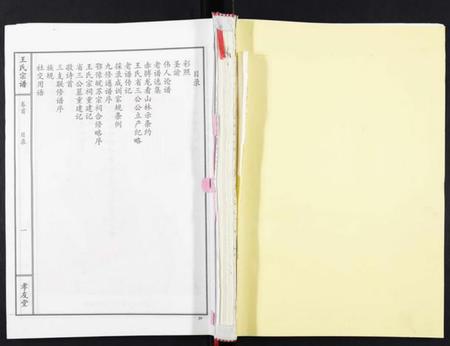 目录
彩照
圣谕
伟人论谱
老谱选集
赤脚龙看山林示条约
王氏省三公公立产纪略
老谱传记
探录成训家规条例
九修通谱序
鄂豫皖苏宗祠合修略序
王氏宗祠重建记
省三公墓重建记
敬诗首
三支联修谱序
族规
社交用语
王氏宗谱
卷首
目录
一
孝友堂